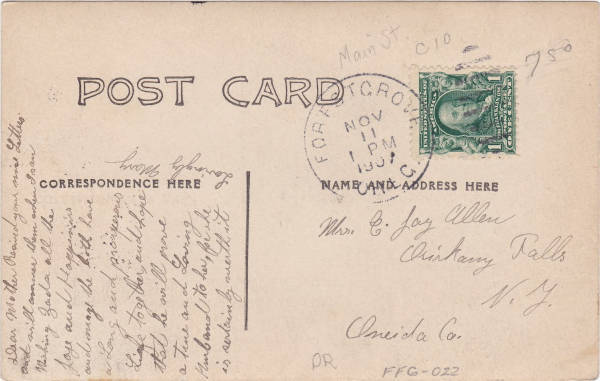 Main St.
C10
7 50
POST CARD
FOREST GROVE
NOV
11
1 PM
1907
OREG.
CORRESPONDENCE HERE
NAME AND ADDRESS HERE
Dear Mother Recind your nice Letters
and will answer them when I can
Wishing Zada all the
joye and Happiness
and maye the both have
a Long and prosperous
Life together and hope
that he will prove
a true and Loving
Husband to her, for she
is sertainly worth it
Lovingly Mary
Mrs. E. Jay Allen
Oriskany Falls
N. Y.
Oneida Co.
OR
FFG-022